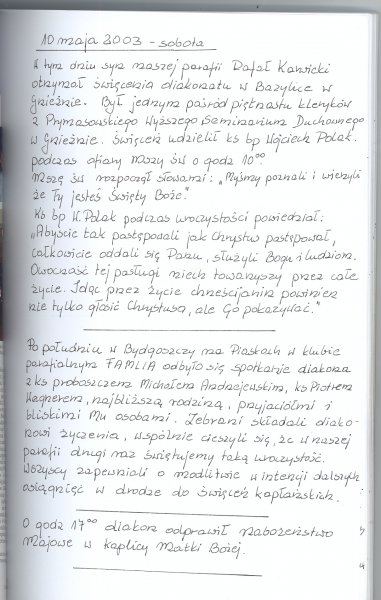 10 maja 2003 - sobota
W tym dniu syn naszej parafii Rafał Kawicki
otrzymał święcenia diakonatu w Bazylice w
Gnieźnie. Był jednym pośród piętnastu kleryków
z Prymasowskiego Wyższego Seminarium Duchownego
w Gnieźnie. Święceń udzielił ks bp Wojciech Polak.
podczas ofiary Mszy św o godz 10⁰⁰
Mszę św rozpoczął słowami: „Myśmy poznali i wierzyli
że Ty jesteś Święty Boże."
Ks bp W. Polak podczas uroczystości powiedział:
„Abyście tak postępowali jak Chrystus postępował,
całkowicie oddali się Panu, służyli Bogu i ludziom.
Owocność tej posługi niech towarzyszy przez całe
życie. Idąc przez życie chrześcijanin powinien
nie tylko głosić Chrystusa, ale Go pokazywać."
Po południu w Bydgoszczy na Piaskach w klubie
parafialnym FAMILIA odbyło się spotkanie diakona
z ks proboszczem Michałem Andrzejewskim, ks Piotrem
Wagnerem, najbliższą rodziną, przyjaciółmi i
bliskimi Mu osobami. Zebrani składali diako-
nowi życzenia, wspólnie cieszyli się, że w naszej
parafii drugi raz świętujemy taką uroczystość.
Wszyscy zapewniali o modlitwie w intencji dalszych
osiągnięć w drodze do święceń kapłańskich.
O godz 17⁰⁰ diakon odprawił nabożeństwo
Majowe w kaplicy Matki Bożej.